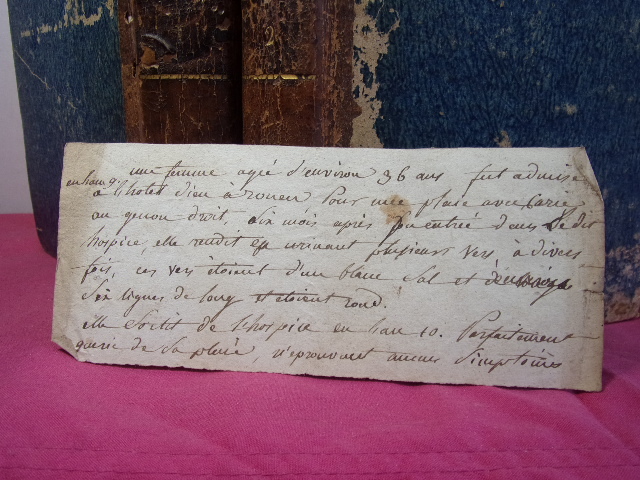 une femme agié d'environ 36 ans fut admise
en l'an 9. à l'hotel dieu à rouen pour une plaie avec carie
au genou droit, dix mois après son entrée dans le dit
hospice, elle rendit en urinant plusieurs vers à divers
fois, ces vers étoient d'un blanc sal et
six lignes de long et etoient rond.
elle sortit de l'hospice en l'an 10. parfaitement
guerie de sa plaie, n'éprouvant aucun simptomes